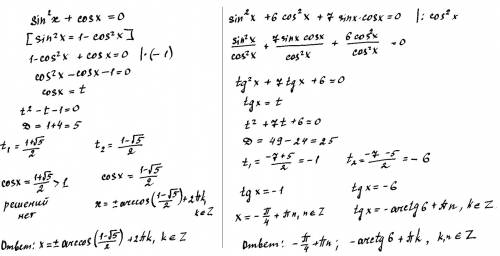 sin²x + cosx = 0
[sin²x = 1 - cos²x]
1 - cos²x + cosx = 0 | · (-1)
cos²x - cosx - 1 = 0
cosx = t
t² - t - 1 = 0
D = 1 + 4 = 5
t₁ = (1+√5)/2   t₂ = (1-√5)/2
cosx = (1+√5)/2 > 1   cosx = (1-√5)/2
решений нет   x = ± arccos((1-√5)/2) + 2πk, k∈Z
Ответ: x = ± arccos((1-√5)/2) + 2πk, k∈Z
sin²x + 6cos²x + 7sinx·cosx = 0 | : cos²x
sin²x/cos²x + 7sinxcosx/cos²x + 6cos²x/cos²x = 0
tg²x + 7tgx + 6 = 0
tgx = t
t² + 7t + 6 = 0
D = 49 - 24 = 25
t₁ = (-7+5)/2 = -1   t₂ = (-7-5)/2 = -6
tgx = -1   tgx = -6
x = -π/4 + πn, n∈Z   tgx = -arctg6 + πn, k∈Z
Ответ: -π/4 + πn; -arctg6 + πk, k,n∈Z